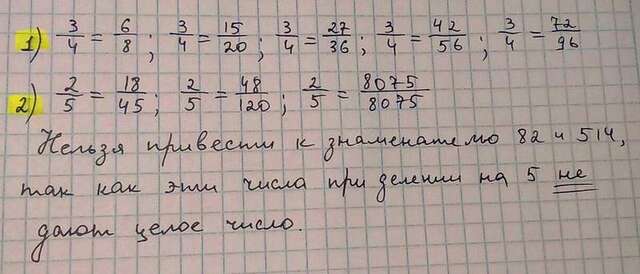 1) 3/4 = 6/8; 3/4 = 15/20; 3/4 = 27/36; 3/4 = 42/56; 3/4 = 72/96
2) 2/5 = 18/45; 2/5 = 48/120; 2/5 = 8075/8075
Нельзя привести к знаменателю 82 и 514,
так как эти числа при делении на 5 не
дают целое число.